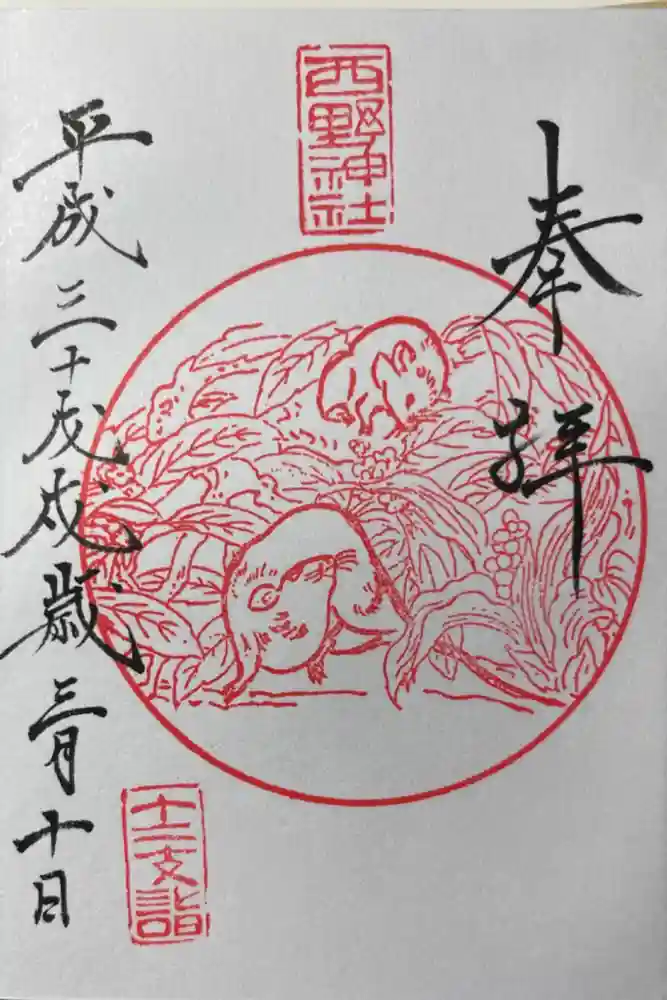 奉拝
西野神社
平成三十戊戌歳三月十日
十二支詣